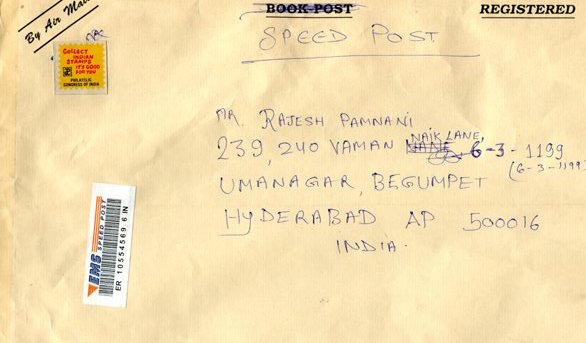 By Air Mail
BOOK-POST
REGISTERED
SPEED POST
COLLECT
INDIAN
STAMPS
IT'S GOOD
FOR YOU
PHILATELIC
CONGRESS OF INDIA
MR. RAJESH PAMNANI
NAIK LANE,
239, 240 VAMAN LANE 6-3-1199
(6-3-1199)
UMANAGAR, BEGUMPET
HYDERABAD AP 500016
INDIA.
EMS SPEED POST
ER 10554569 6 IN